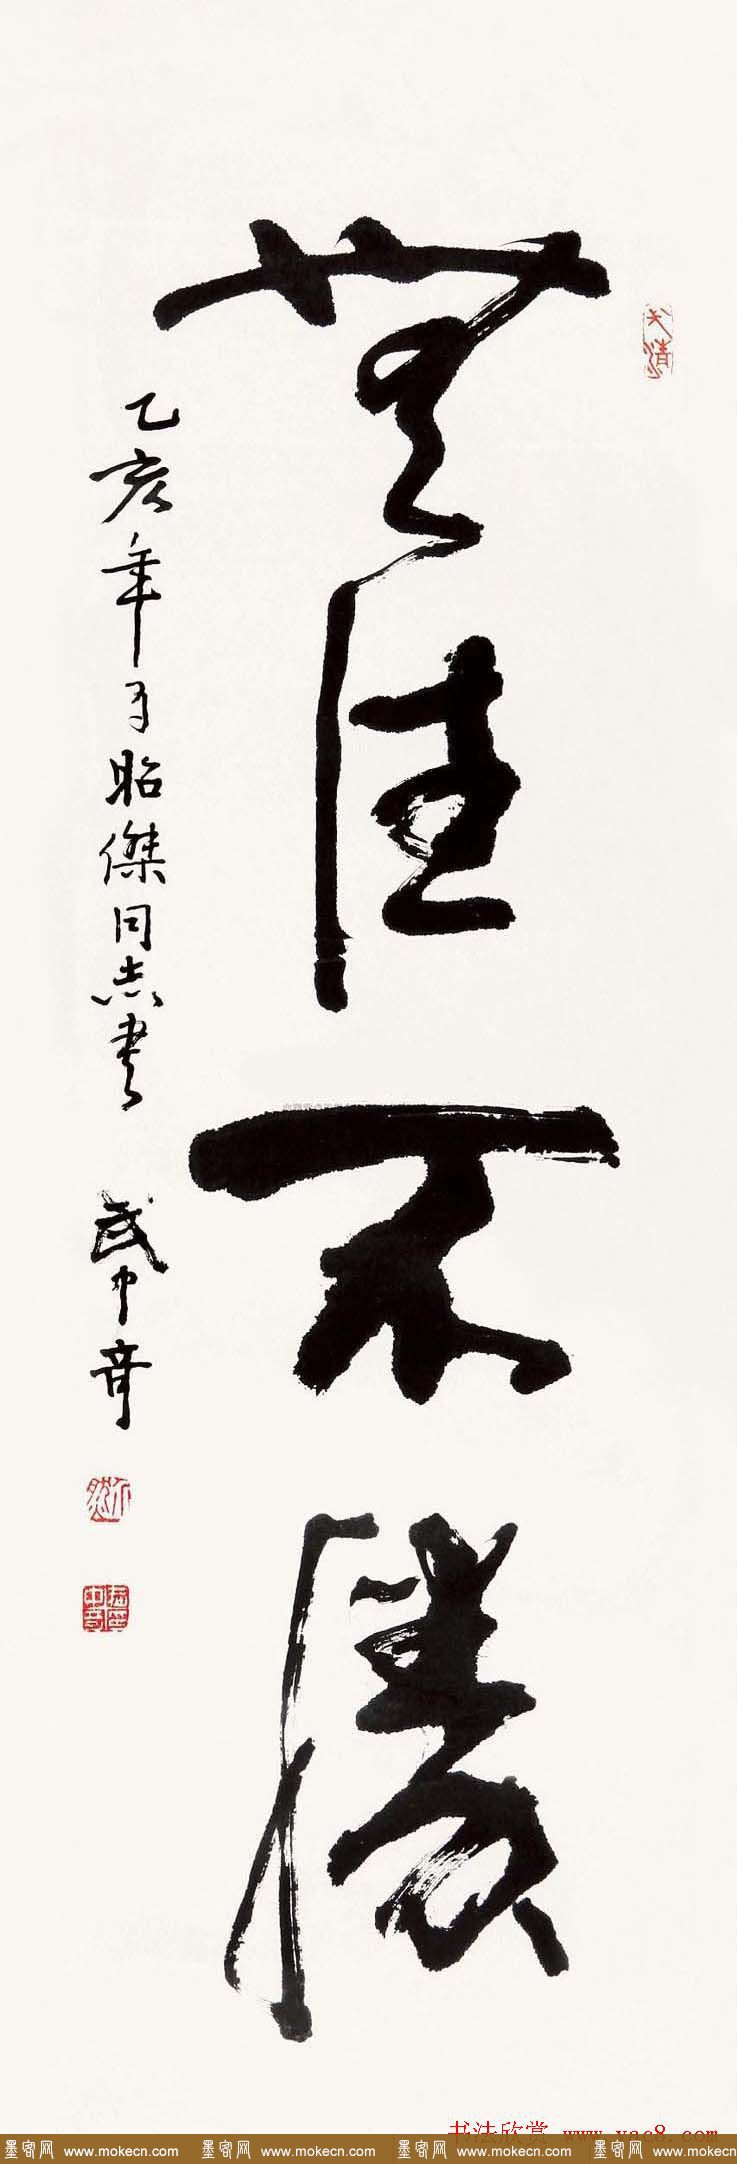 無往不勝
乙亥年 昭傑同志書 武中奇
书法欣赏 www.yac8.com
墨客网 www.mokecn.com 墨客网 www.mokecn.com 墨客网 www.mokecn.com 墨客网 www.mokecn.com